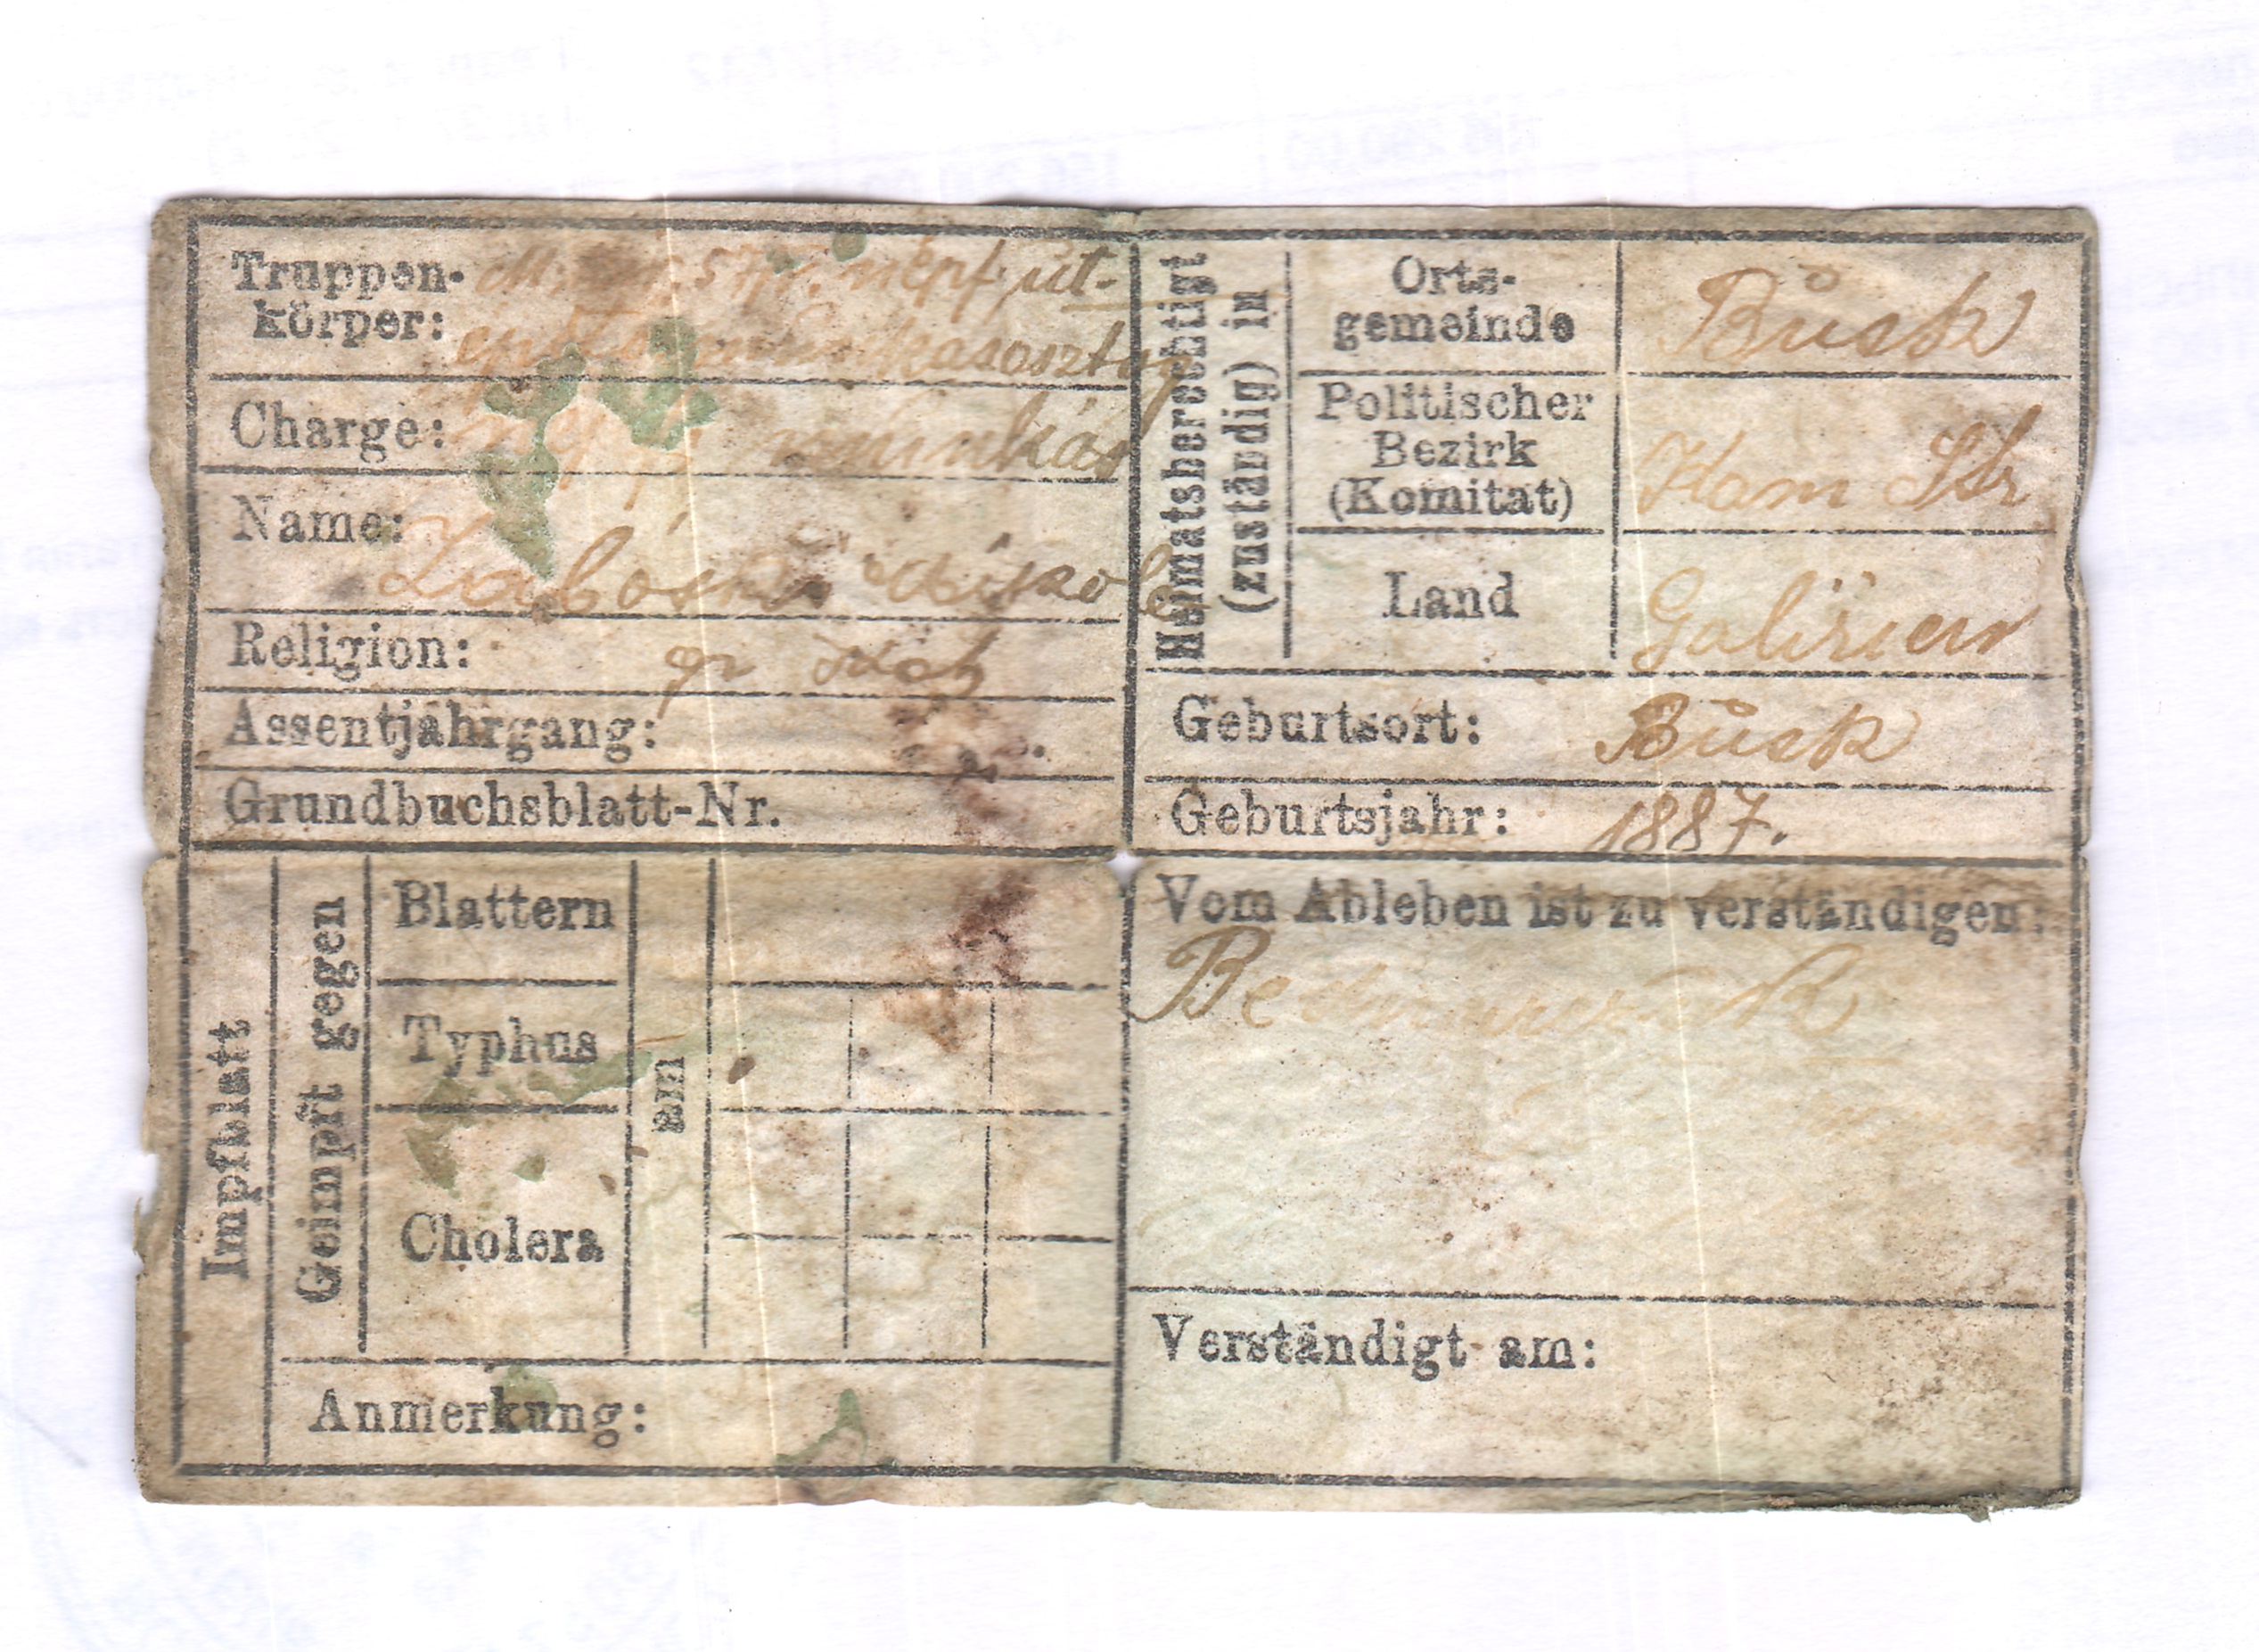 Truppen-
körper:
népf. út-
munkásosztag
Charge: munkás
Name:
Religion: gr Kath
Assentjahrgang:
Grundbuchsblatt-Nr.
Heimatsberechtigt
(zuständig) in
Orts-
gemeinde
Busk
Politischer
Bezirk
(Komitat)
Kam Str
Land
Galizien
Geburtsort: Busk
Geburtsjahr: 1887.
Impfblatt
Geimpft gegen
Blattern
Typhus
Cholera
am
Anmerkung:
Vom Ableben ist zu verständigen:
Verständigt am: